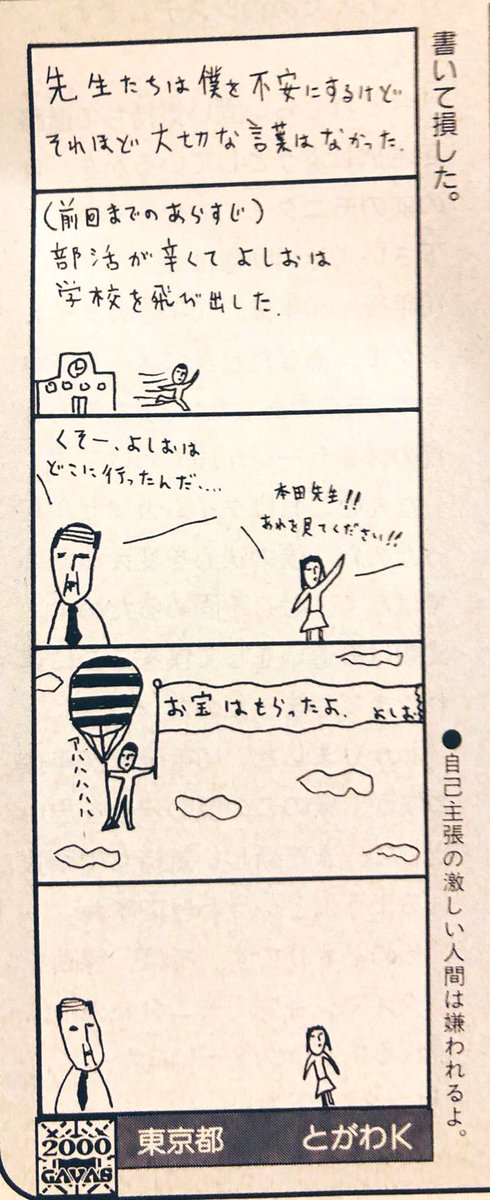 書いて損した。
先生たちは僕を不安にするけど
それほど大切な言葉はなかった.
(前回までのあらすじ)
部活が辛くてよしおは
学校を飛び出した.
くそー、よしおは
どこに行ったんだ、...
本田先生!!
あれを見てください!!
お宝はもらったよ. よしお
アハハハハハ
●自己主張の激しい人間は嫌われるよ。
2000
GAVAS
東京都 とがわK